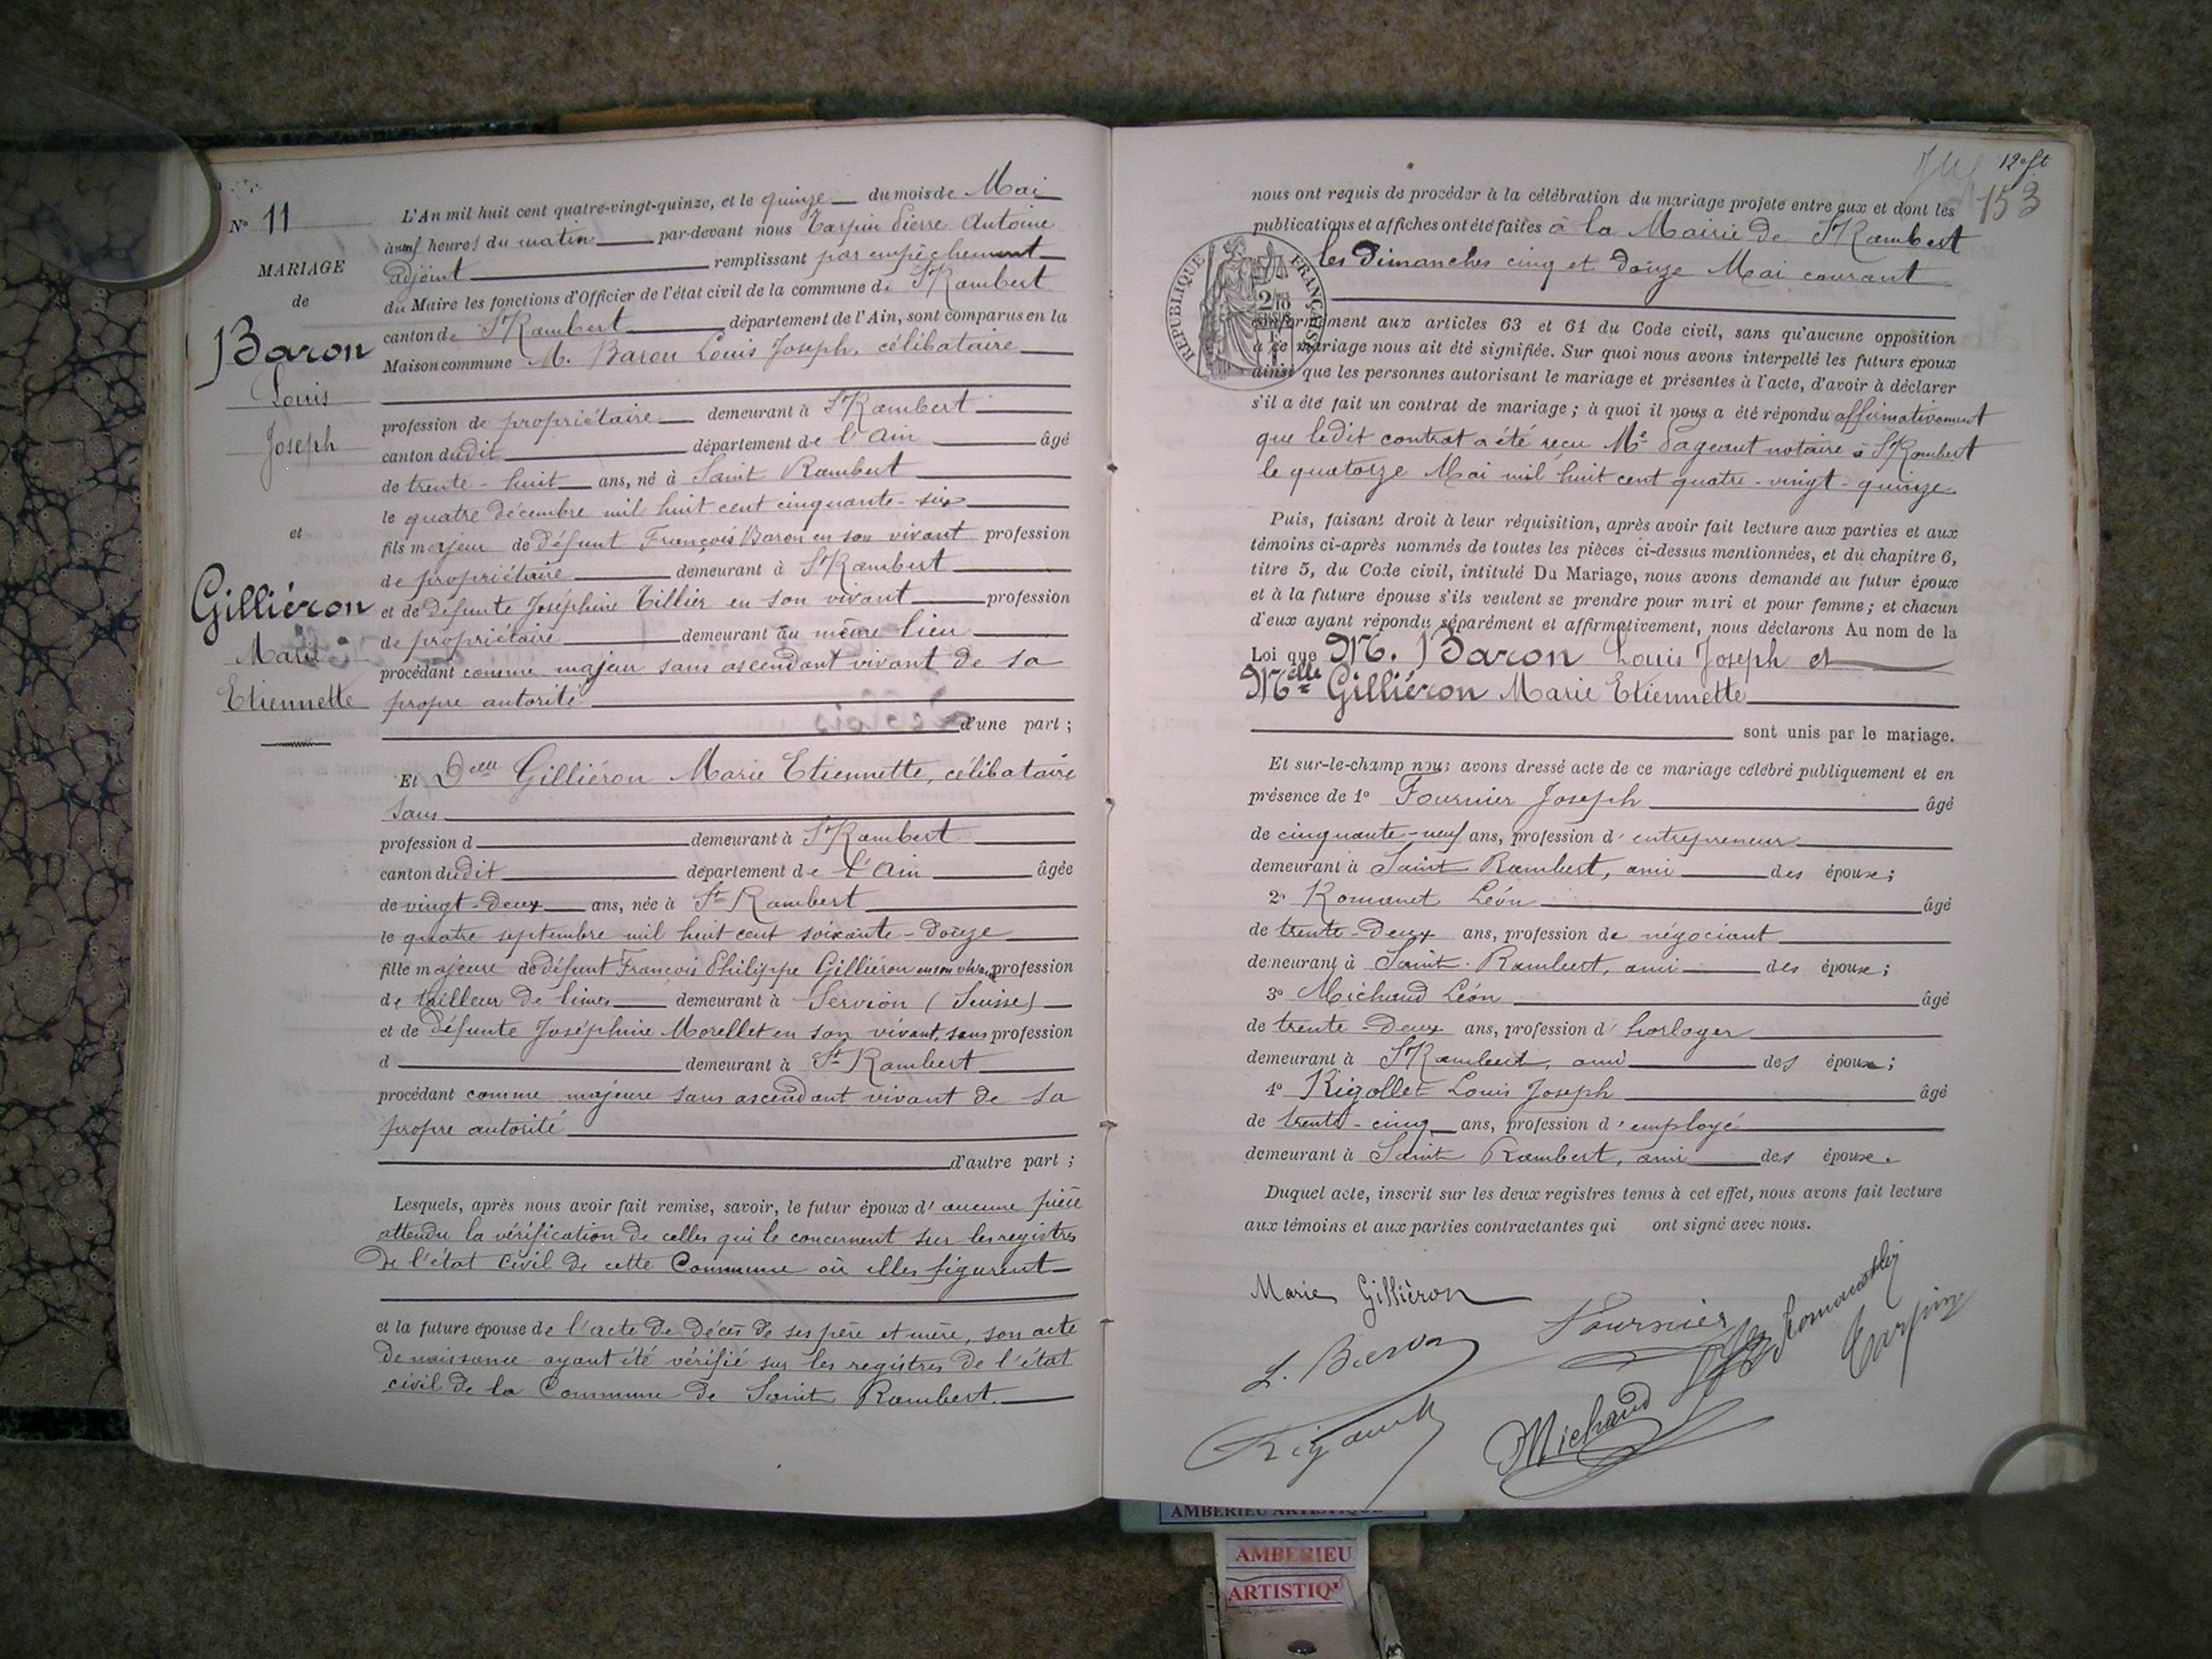 N° 11
MARIAGE
de
Baron
Louis
Joseph
et
Gilliéron
Marie
Etiennette
L'An mil huit cent quatre-vingt-quinze, et le quinze du mois de Mai
à neuf heures du matin par-devant nous Tarpin Pierre Antoine
adjoint remplissant par empêchement
du Maire les fonctions d'Officier de l'état civil de la commune de St Rambert
canton de St Rambert département de l'Ain, sont comparus en la
Maison commune M. Baron Louis Joseph, célibataire
profession de propriétaire demeurant à St Rambert
canton dudit département de l'Ain âgé
de trente-huit ans, né à Saint Rambert
le quatre décembre mil huit cent cinquante-six
fils majeur de défunt François Baron en son vivant profession
de propriétaire demeurant à St Rambert
et de défunte Joséphine Tillier en son vivant profession
de propriétaire demeurant au même lieu
procédant comme majeur sans ascendant vivant de sa
propre autorité
d'une part ;
Et Delle Gilliéron Marie Etiennette, célibataire
sans
profession d demeurant à St Rambert
canton dudit département de l'Ain âgée
de vingt-deux ans, née à St Rambert
le quatre septembre mil huit cent soixante-douze
fille majeure de défunt François Philippe Gilliéron en son vivant profession
de tailleur de limes demeurant à Servion (Suisse)
et de défunte Joséphine Morellet en son vivant, sans profession
d demeurant à St Rambert
procédant comme majeure sans ascendant vivant de sa
propre autorité
d'autre part ;
Lesquels, après nous avoir fait remise, savoir, le futur époux d'aucune pièce
attendu la vérification de celles qui le concernent sur les registres
de l'état civil de cette Commune où elles figurent
et la future épouse de l'acte de décès de ses père et mère, son acte
de naissance ayant été vérifié sur les registres de l'état
civil de la Commune de Saint Rambert.
12e ft
153
nous ont requis de procéder à la célébration du mariage projeté entre eux et dont les
publications et affiches ont été faites à la Mairie de St Rambert
les Dimanches cinq et douze Mai courant
RÉPUBLIQUE FRANÇAISE
2/10
conformément aux articles 63 et 64 du Code civil, sans qu'aucune opposition
à ce mariage nous ait été signifiée. Sur quoi nous avons interpellé les futurs époux
ainsi que les personnes autorisant le mariage et présentes à l'acte, d'avoir à déclarer
s'il a été fait un contrat de mariage ; à quoi il nous a été répondu affirmativement
que ledit contrat a été reçu Me Pageaut notaire à St Rambert
le quatorze Mai mil huit cent quatre-vingt-quinze
Puis, faisant droit à leur réquisition, après avoir fait lecture aux parties et aux
témoins ci-après nommés de toutes les pièces ci-dessus mentionnées, et du chapitre 6,
titre 5, du Code civil, intitulé Du Mariage, nous avons demandé au futur époux
et à la future épouse s'ils veulent se prendre pour mari et pour femme ; et chacun
d'eux ayant répondu séparément et affirmativement, nous déclarons Au nom de la
Loi que M. Baron Louis Joseph et
Melle Gilliéron Marie Etiennette
sont unis par le mariage.
Et sur-le-champ nous avons dressé acte de ce mariage célébré publiquement et en
présence de 1° Fournier Joseph âgé
de cinquante-neuf ans, profession d'entrepreneur
demeurant à Saint Rambert, ami des époux ;
2° Romanet Léon âgé
de trente-deux ans, profession de négociant
demeurant à Saint-Rambert, ami des époux ;
3° Michaud Léon âgé
de trente-deux ans, profession d'horloger
demeurant à St Rambert, ami des époux ;
4° Rigollet Louis Joseph âgé
de trente-cinq ans, profession d'employé
demeurant à Saint Rambert, ami des époux.
Duquel acte, inscrit sur les deux registres tenus à cet effet, nous avons fait lecture
aux témoins et aux parties contractantes qui ont signé avec nous.
Marie Gilliéron
L. Baron
Fournier
Tarpin
Michaud
AMBERIEU ARTISTIQUE
AMBERIEU
ARTISTIQ